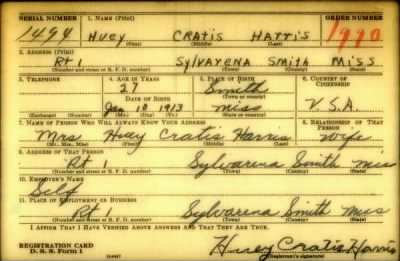 SERIAL NUMBER 1. NAME (Print) ORDER NUMBER
1494 HUEY CRATIS HARRIS 1990
(First) (Middle) (Last)
2. ADDRESS (Print)
Rt 1 Sylvarena Smith Miss
(Number and street or R. F. D. number) (Town) (County) (State)
3. TELEPHONE 4. AGE IN YEARS 5. PLACE OF BIRTH 6. COUNTRY OF CITIZENSHIP
27 Smith
DATE OF BIRTH (Town or county)
Jan 10 1913 Miss U.S.A.
(Exchange) (Number) (Mo.) (Day) (Yr.) (State or country)
7. NAME OF PERSON WHO WILL ALWAYS KNOW YOUR ADDRESS 8. RELATIONSHIP OF THAT PERSON
Mrs Huey Cratis Harris Wife
(Mr., Mrs., Miss) (First) (Middle) (Last)
9. ADDRESS OF THAT PERSON
Rt 1 Sylvarena Smith Mis
(Number and street or R. F. D. number) (Town) (County) (State)
10. EMPLOYER'S NAME
Self
11. PLACE OF EMPLOYMENT OR BUSINESS
Rt 1 Sylvarena Smith Miss
(Number and street or R. F. D. number) (Town) (County) (State)
I AFFIRM THAT I HAVE VERIFIED ABOVE ANSWERS AND THAT THEY ARE TRUE.
REGISTRATION CARD
D. S. S. Form 1 Huey Cratis Harris
(over) (Registrant's signature)